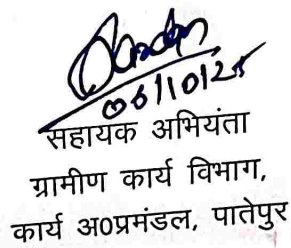 06/10/25
सहायक अभियंता
ग्रामीण कार्य विभाग,
कार्य अ0प्रमंडल, पातेपुर